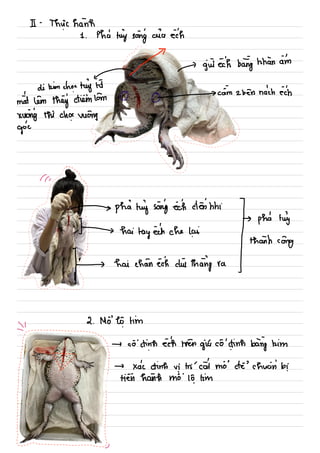 II - Thực hành
1. Phá tủy sống của ếch
giữ ếch bằng khăn ẩm
cầm 2 bên nách ếch
di kim chọc tủy từ
mắt lần thấy điểm lõm
xuống thì chọc vuông
góc
phá tủy sống ếch đến khi
hai tay ếch che lại
hai chân ếch duỗi thẳng ra
phá tủy
thành công
2. Mổ lộ tim
cố định ếch trên giá cố định bằng kim
xác định vị trí cắt mổ để chuẩn bị
tiến hành mổ lộ tim